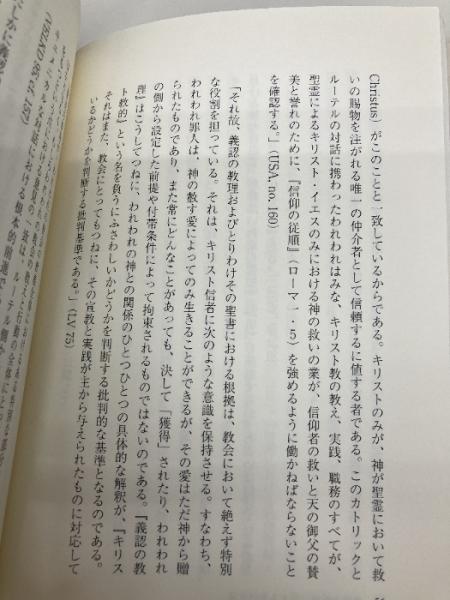 Christus)がこのことと一致しているからである。キリストのみが、神が聖霊において救
いの賜物を注がれる唯一の仲介者として信頼するに値する者である。このカトリックと
ルーテルの対話に携わったわれわれはみな、キリスト教の教え、実践、職務のすべてが、
聖霊によるキリスト・イエスのみにおける神の救いの業が、信仰者の救いと天の御父の賛
美と誉れのために、『信仰の従順』(ローマ一・5)を強めるように働かねばならないこと
を確認する。」(USA, no. 160)
「それ故、義認の教理およびとりわけその聖書における根拠は、教会において絶えず特別
な役割を担っている。それは、キリスト信者に次のような意識を保持させる。すなわち、
われわれ罪人は、神の赦す愛によってのみ生きることができるが、その愛はただ神から贈
られたものであり、また常にどんなことがあっても、決して「獲得」されたり、われわれ
の側から設定した前提や付帯条件によって拘束されるものではないのである。『義認の教
理』はこうしてつねに、われわれの神との関係のひとつひとつの具体的な解釈が、『キリス
ト教的』という名を負うにふさわしいかどうかを判断する批判的な基準となるのである。
それはまた、教会にとってもつねに、その宣教と実践が主から与えられたものに対応して
いるかどうかを判断する批判基準である。」(LV 75)